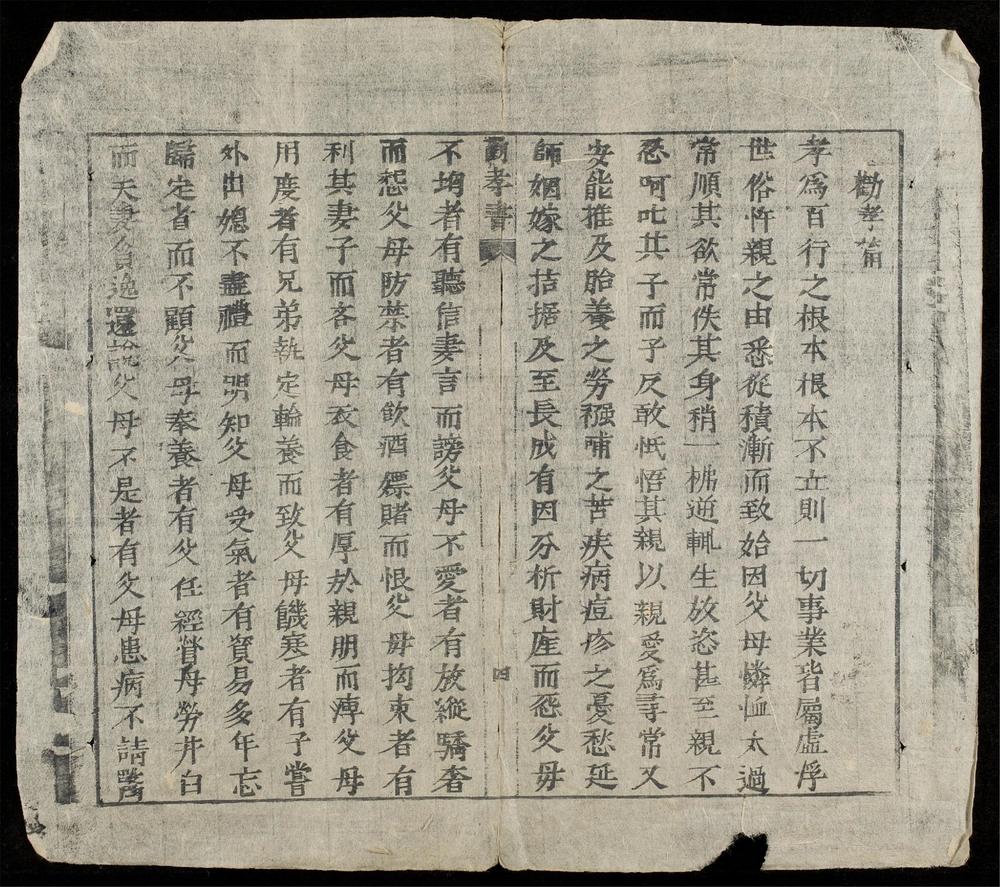 勸孝篇
孝爲百行之根本根本不立則一切事業皆屬虛浮
世俗忤親之由悉從積漸而致始因父母憐恤太過
常順其欲常佚其身稍一拂逆輒生放恣甚至親不
忍呵叱其子而子反敢牴牾其親以親愛爲尋常又
安能推及胎養之勞襁哺之苦疾病痘疹之憂愁延
師姻嫁之拮据及至長成有因分析財産而怨父母
勸孝書 四
不均者有聽信妻言而謗父母不愛者有放縱驕奢
而怨父母防禁者有飲酒嫖賭而恨父母拘束者有
利其妻子而吝父母衣食者有厚於親朋而薄父母
用度者有兄弟執定輪養而致父母饑寒者有子嘗
外出媳不盡禮而明知父母受氣者有貿易多年忘
歸定省而不顧父母奉養者有父任經營母勞井臼
而夫妻貪逸還說父母不是者有父母患病不請醫